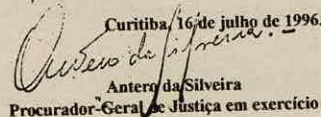 Curitiba, 16 de julho de 1996.
Antero da Silveira
Antero da Silveira
Procurador-Geral de Justiça em exercício